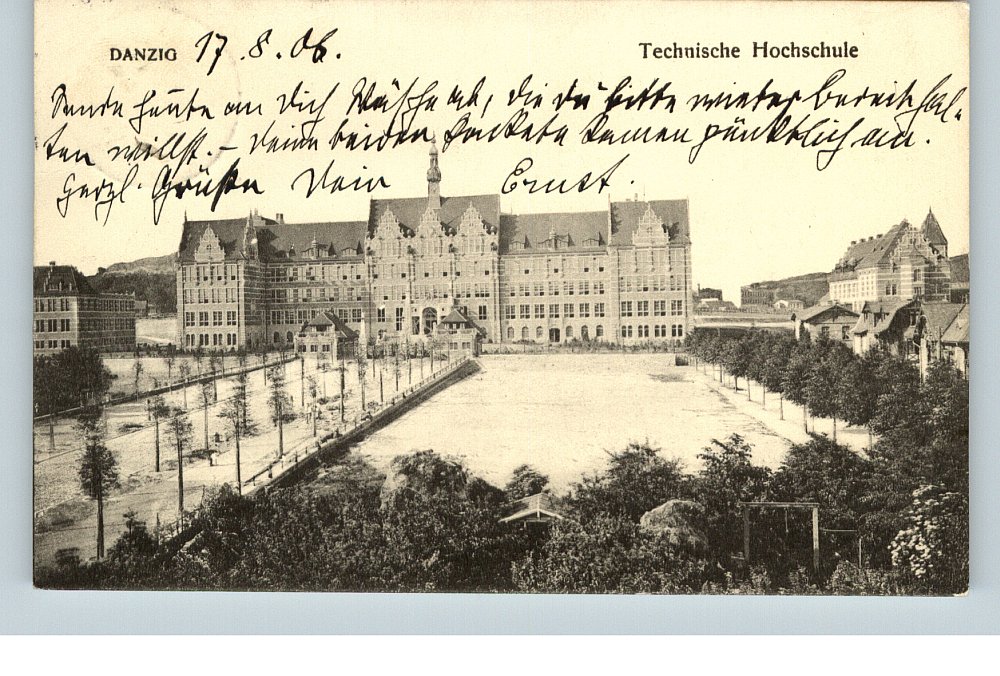 DANZIG 17.8.06. Technische Hochschule
Sende heute an Dich Wäsche ab, die Du bitte wieder bereit hal-
ten willst. - Deine beiden Pakete kamen pünktlich an.
Herzl. Grüße Dein Ernst.